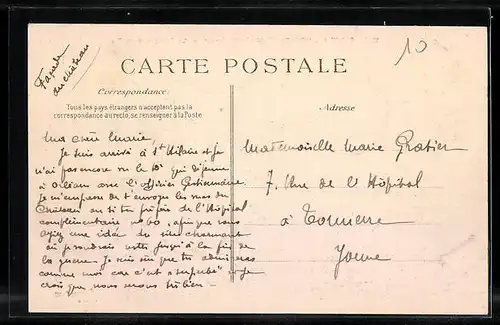 Façade
du château
10
CARTE POSTALE
Correspondance
Tous les pays étrangers n'acceptent pas la
correspondance au recto, se renseigner à la Poste
Adresse
Ma chère Marie,
Je suis arrivé à St Hilaire et je
n'ai pas encore vu le qui déjeune
à Orléans avec l'officier
Je m'empresse de t'envoyer les vues du
Château où l'on de l'Hôpital
complémentaire no 60, afin que vous
ayez une idée du site charmant
où je voudrais rester jusqu'à la fin de
la guerre. Je suis sûr que tu admireras
comme moi car c'est "superbe" et je
crois que nous serons très bien -
Mademoiselle Marie Gratier
7, Rue de l'Hôpital
à Tonnerre
Yonne